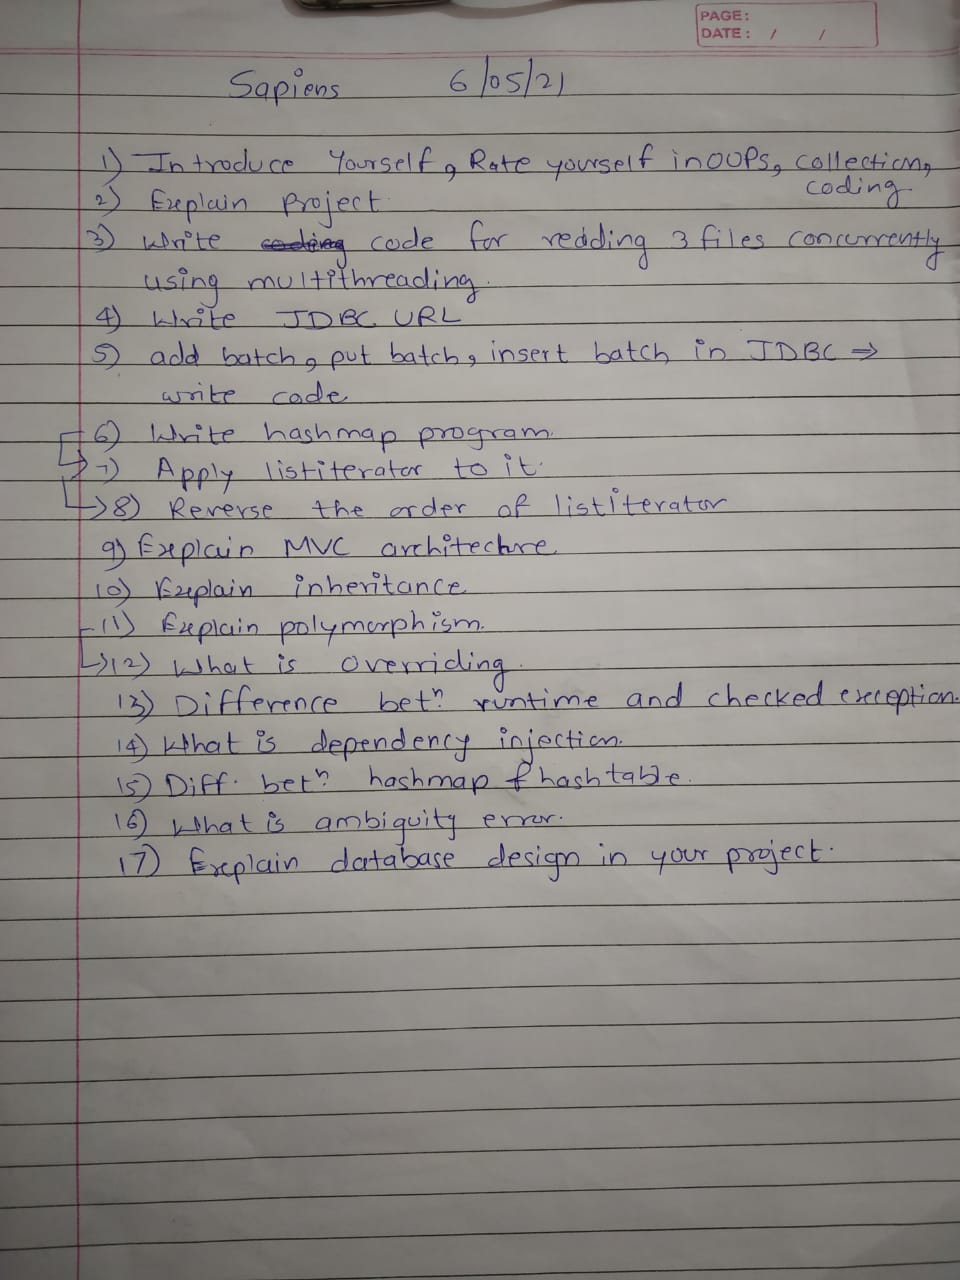 PAGE:
DATE: / /
Sapiens 6/05/21
1) Introduce Yourself, Rate yourself in OOPs, collection,
coding.
2) Explain Project.
3) Write coding code for reading 3 files concurrently
using multithreading.
4) Write JDBC URL
5) add batch, put batch, insert batch in JDBC ⇒
write code
6) Write hashmap program.
→ 7) Apply listiterator to it.
→ 8) Reverse the order of listiterator
9) Explain MVC architecture.
10) Explain inheritance.
11) Explain polymorphism.
→ 12) What is overriding.
13) Difference betn runtime and checked exception.
14) What is dependency injection.
15) Diff. betn hashmap & hashtable.
16) What is ambiguity error.
17) Explain database design in your project.